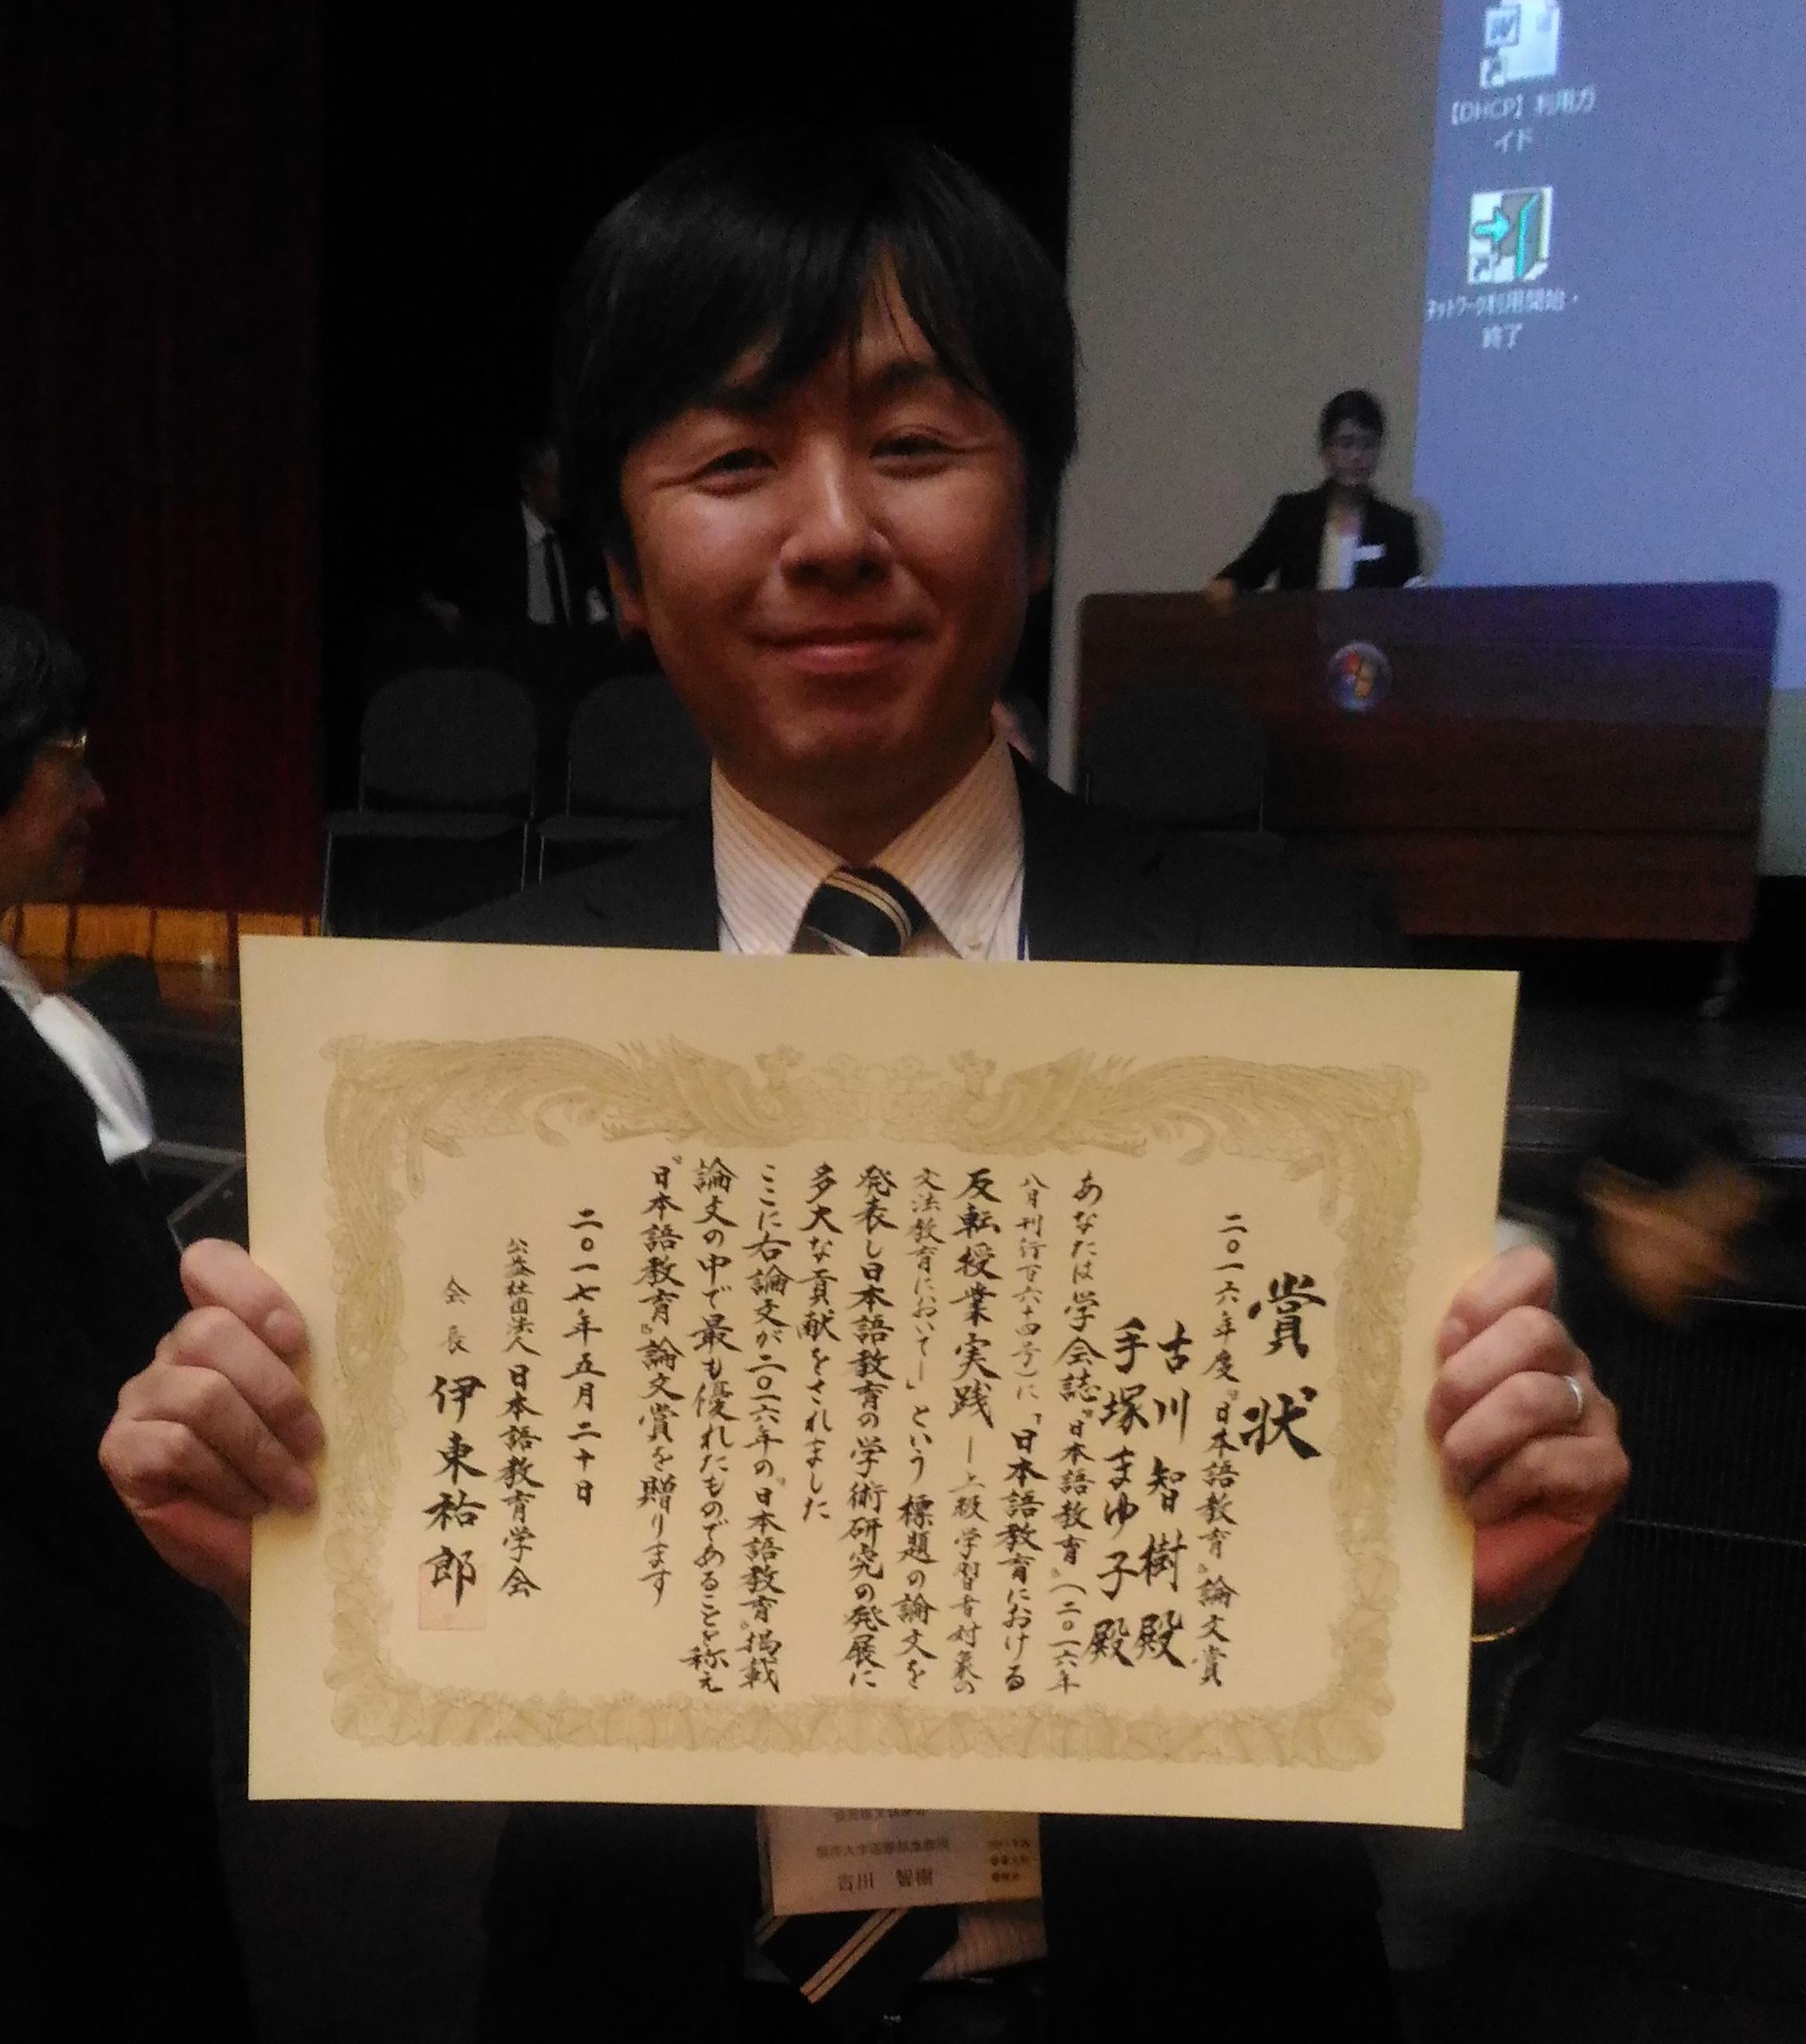 賞状
二〇一六年度『日本語教育』論文賞
古川智樹殿
手塚まゆ子殿
あなたは学会誌『日本語教育』（二〇一六年
八月刊行百六十四号）に「日本語教育における
反転授業実践―上級学習者対象の
文法教育において―」という標題の論文を
発表し日本語教育の学術研究の発展に
多大な貢献をされました
ここに右論文が二〇一六年の『日本語教育』掲載
論文の中で最も優れたものであることを称え
『日本語教育』論文賞を贈ります
二〇一七年五月二十日
公益社団法人 日本語教育学会
会長 伊東祐郎
【DHCP】利用ガ
イド
ネットワーク利用開始・
終了
古川 智樹